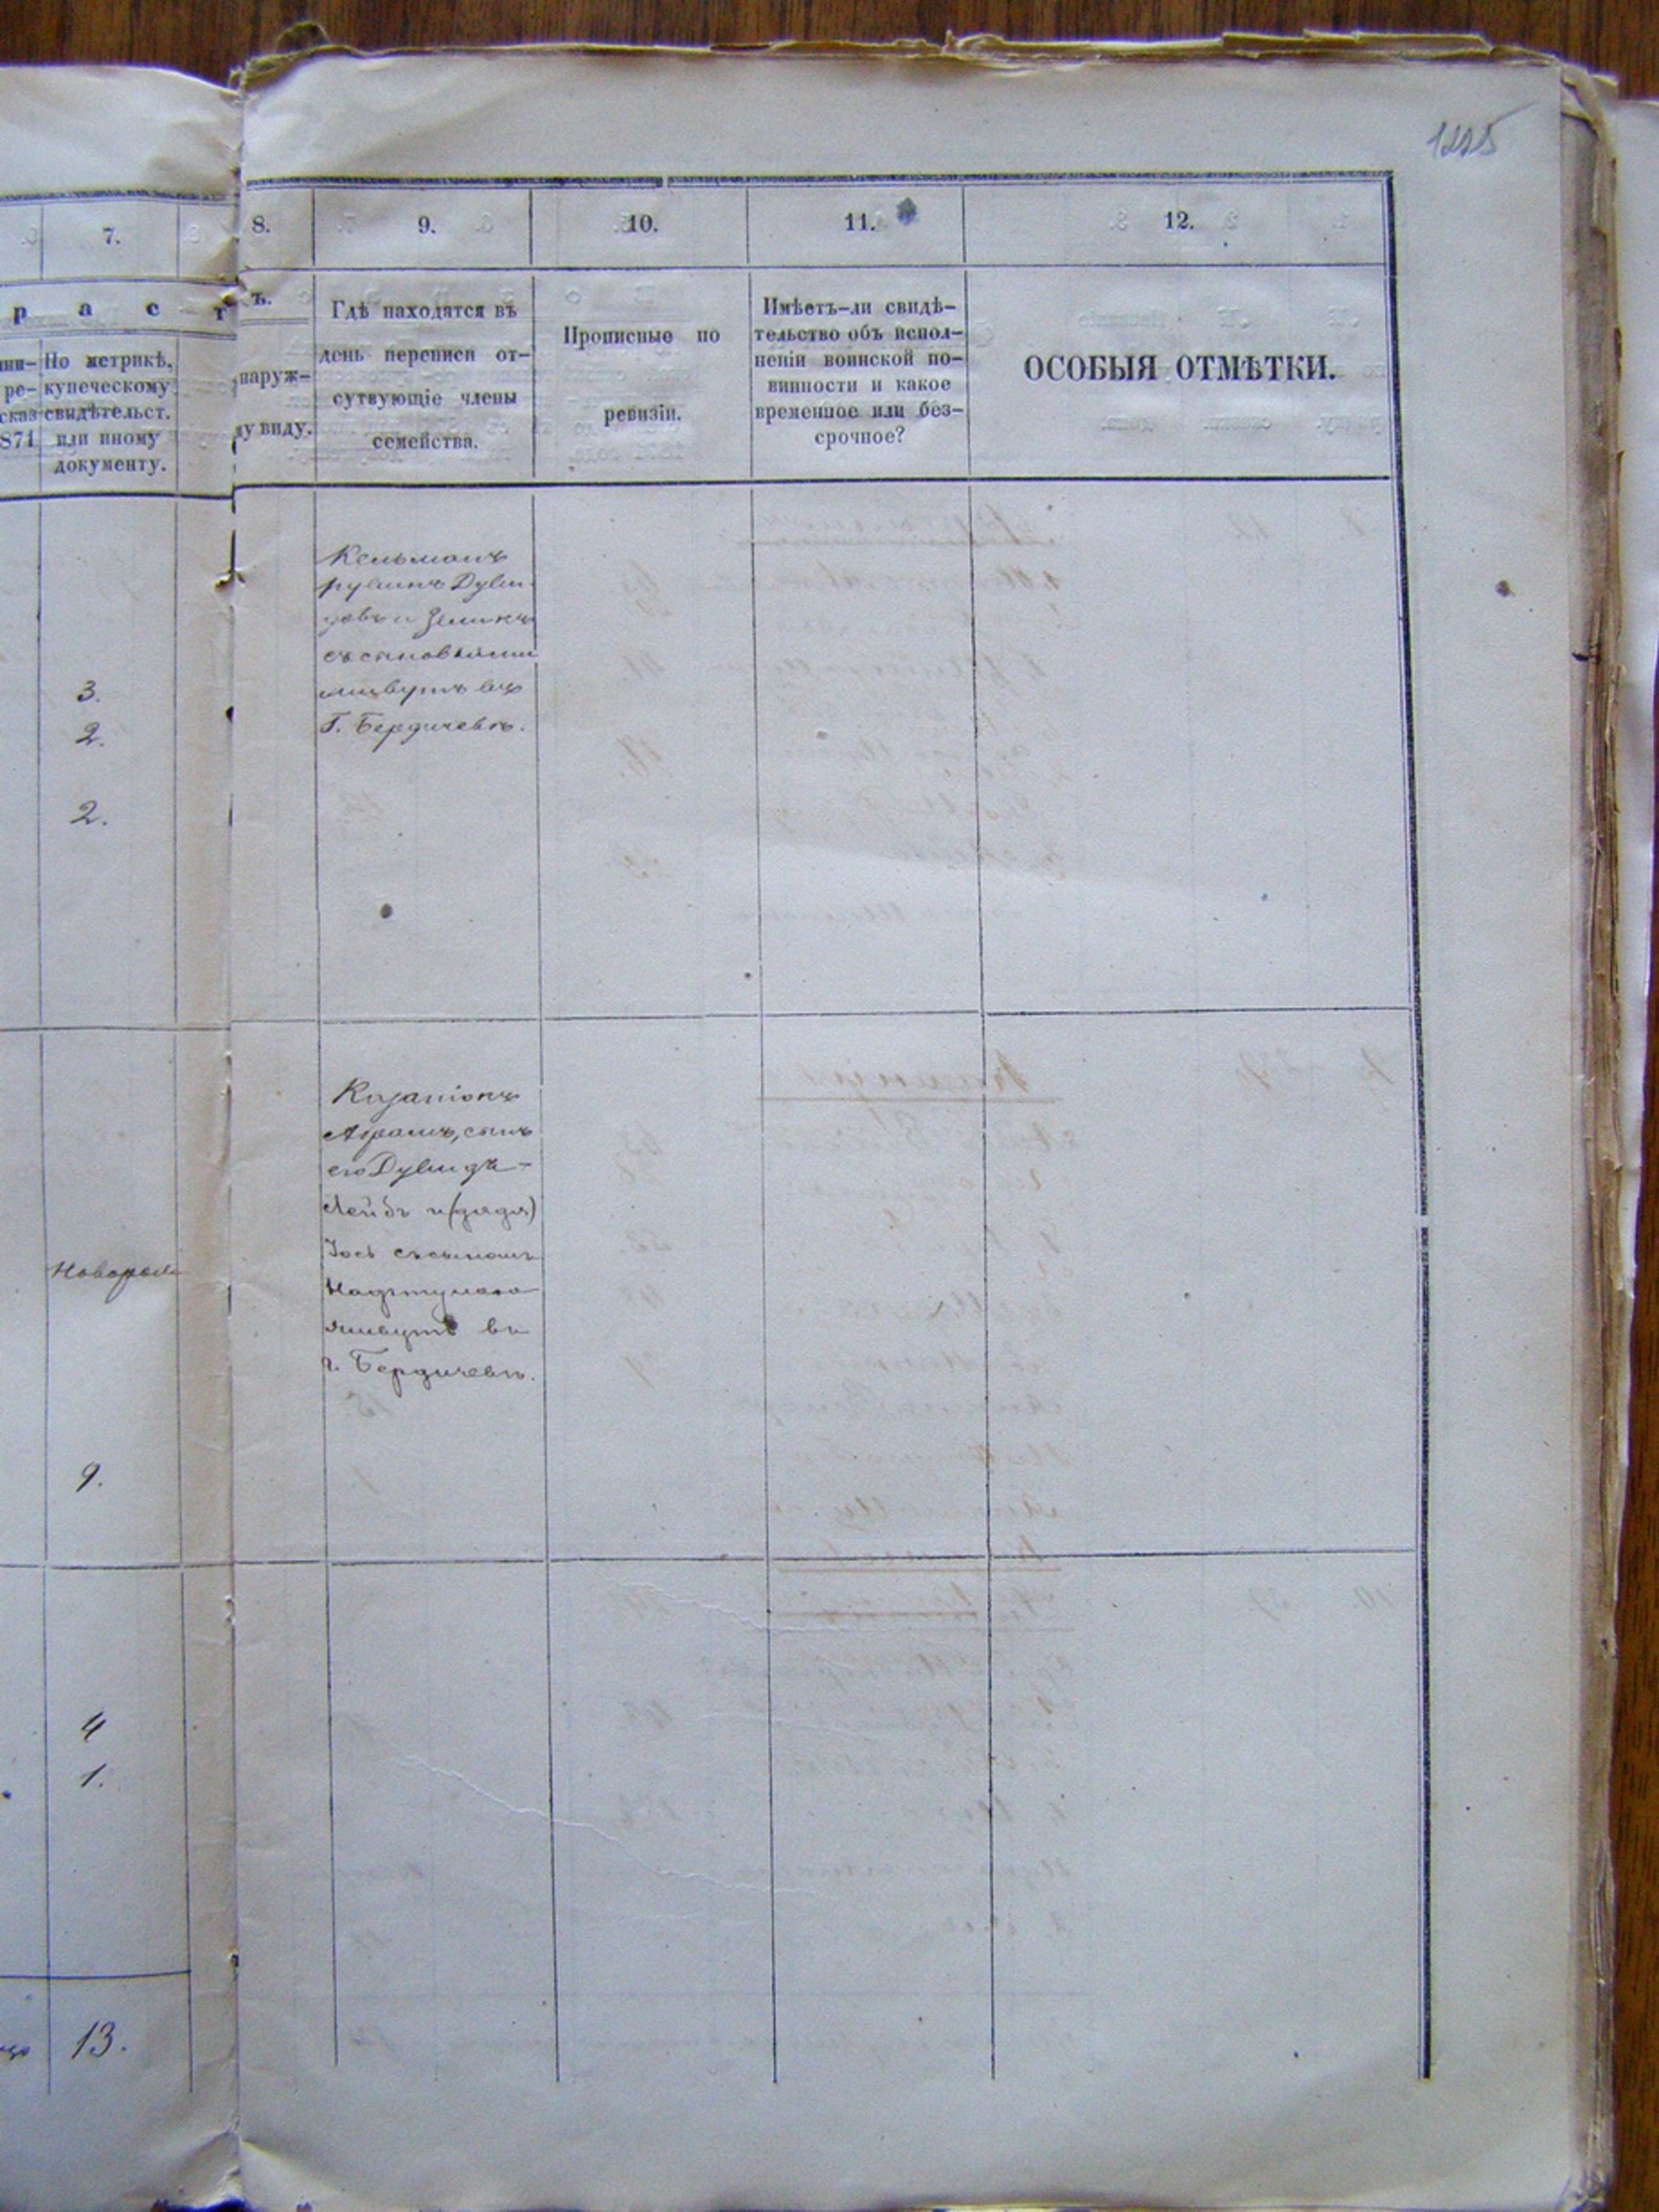 1225
7.
8.
9.
10.
11.
12.
р а с т
ъ.
По метрикѣ,
купеческому
свидѣтельст.
или иному
документу.
ре-
сказ
871
наруж-
ду виду.
Гдѣ находятся въ
день переписи от-
сутвующіе члены
семейства.
Прописные по
ревизіи.
Имѣетъ-ли свидѣ-
тельство объ испол-
неніи воинской по-
винности и какое
временное или без-
срочное?
ОСОБЫЯ ОТМѢТКИ.
Кельманъ
съ сыновьями
живутъ въ
Г. Бердичевѣ.
3.
2.
2.
Абрамъ, сынъ
его Дувидъ-
Лейбъ и (дядя)
Іось съ сыномъ
живутъ въ
г. Бердичевѣ.
9.
4
1.
13.